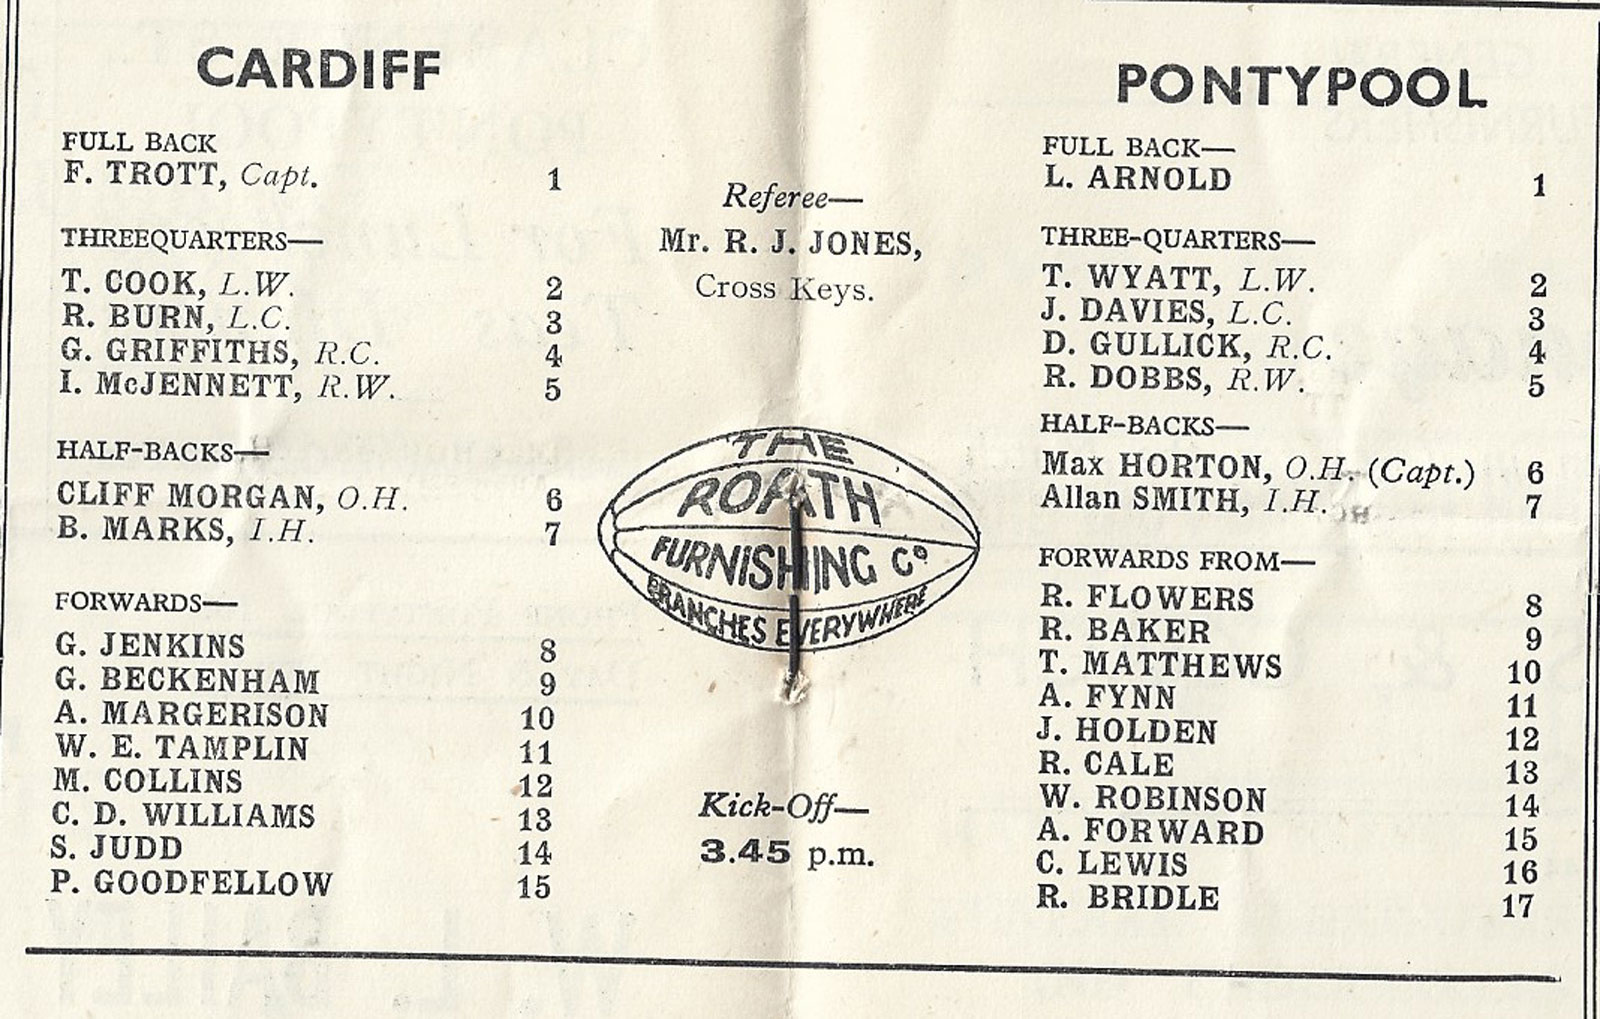 CARDIFF
FULL BACK
F. TROTT, Capt. 1
THREEQUARTERS—
T. COOK, L.W. 2
R. BURN, L.C. 3
G. GRIFFITHS, R.C. 4
I. McJENNETT, R.W. 5
HALF-BACKS—
CLIFF MORGAN, O.H. 6
B. MARKS, I.H. 7
FORWARDS—
G. JENKINS 8
G. BECKENHAM 9
A. MARGERISON 10
W. E. TAMPLIN 11
M. COLLINS 12
C. D. WILLIAMS 13
S. JUDD 14
P. GOODFELLOW 15
Referee—
Mr. R. J. JONES,
Cross Keys.
THE
ROATH
FURNISHING Co
BRANCHES EVERYWHERE
Kick-Off—
3.45 p.m.
PONTYPOOL
FULL BACK—
L. ARNOLD 1
THREE-QUARTERS—
T. WYATT, L.W. 2
J. DAVIES, L.C. 3
D. GULLICK, R.C. 4
R. DOBBS, R.W. 5
HALF-BACKS—
Max HORTON, O.H. (Capt.) 6
Allan SMITH, I.H. 7
FORWARDS FROM—
R. FLOWERS 8
R. BAKER 9
T. MATTHEWS 10
A. FYNN 11
J. HOLDEN 12
R. CALE 13
W. ROBINSON 14
A. FORWARD 15
C. LEWIS 16
R. BRIDLE 17